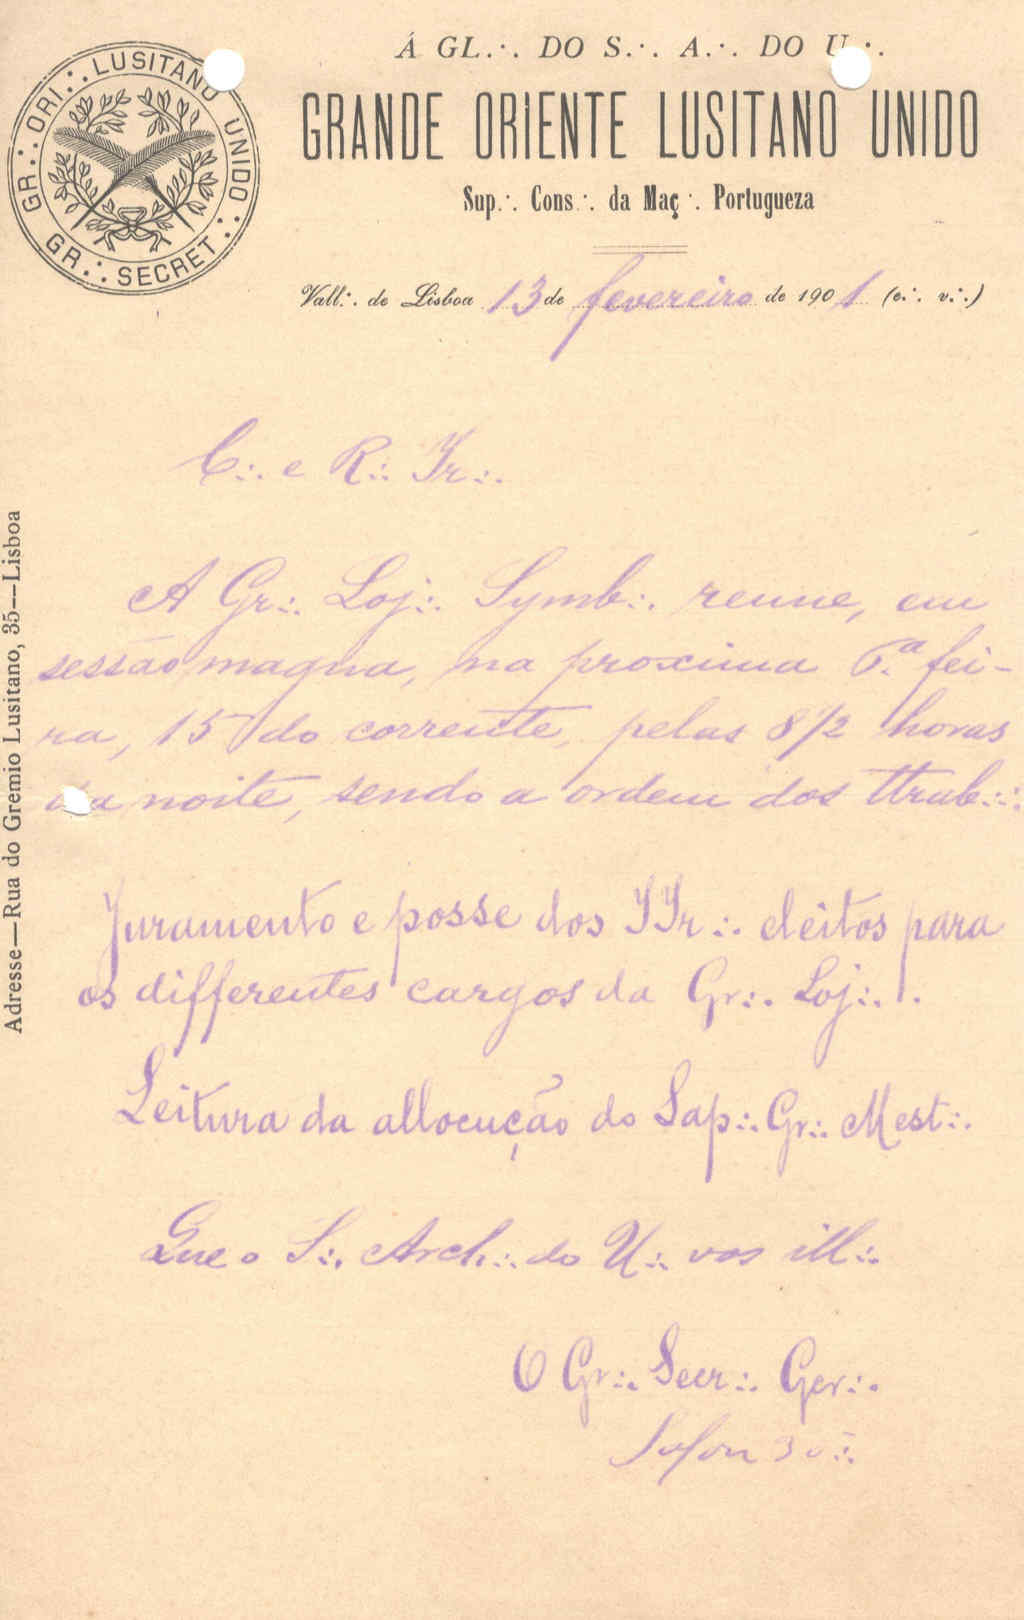 Á GL.·. DO S.·. A.·. DO U.·.
GR.·. ORI.·. LUSITANO UNIDO.·.
GR.·. SECRET.·.
GRANDE ORIENTE LUSITANO UNIDO
Sup.·. Cons.·. da Maç.·. Portugueza
Vall.·. de Lisboa 13 de fevereiro de 1901 (e.·. v.·.)
C.·. e R.·. Ir.·.
A Gr.·. Loj.·. Symb.·. reune, em
sessão magna, na proxima 6.ª fei-
ra, 15 do corrente, pelas 8 1/2 horas
da noite, sendo a ordem dos ttrab.·.:
Juramento e posse dos IIr.·. eleitos para
os differentes cargos da Gr.·. Loj.·. .
Leitura da allocução do Sap.·. Gr.·. Mest.·.
Que o S.·. Arch.·. do U.·. vos ill.·.
O Gr.·. Secr.·. Ger.·.
30.·.
Adresse—Rua do Gremio Lusitano, 35—Lisboa